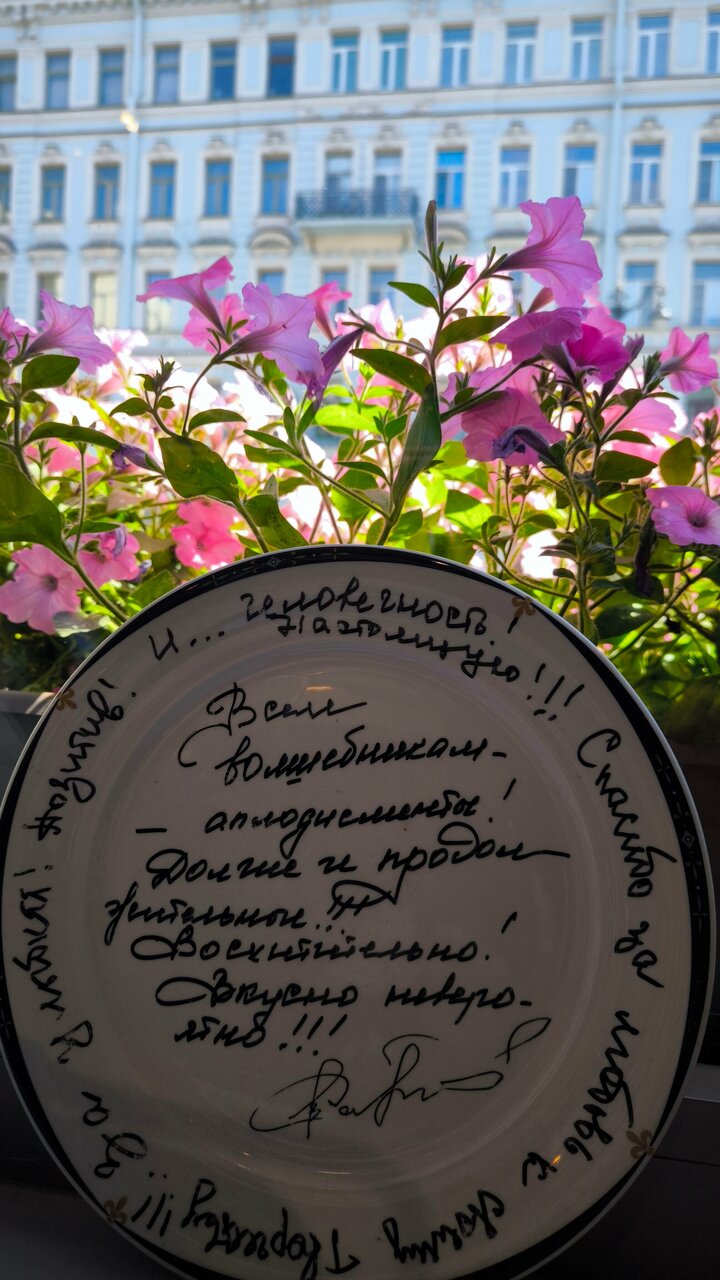 Всем
волшебникам-
- аплодисменты!
Долгие и продол
жительные...!!!
Восхитительно!
Вкусно неверо-
ятно!!!
Спасибо за любовь к своему
Творчеству!!!
За
улыбки! Позитив! И... человечность!
Настоящую!!!